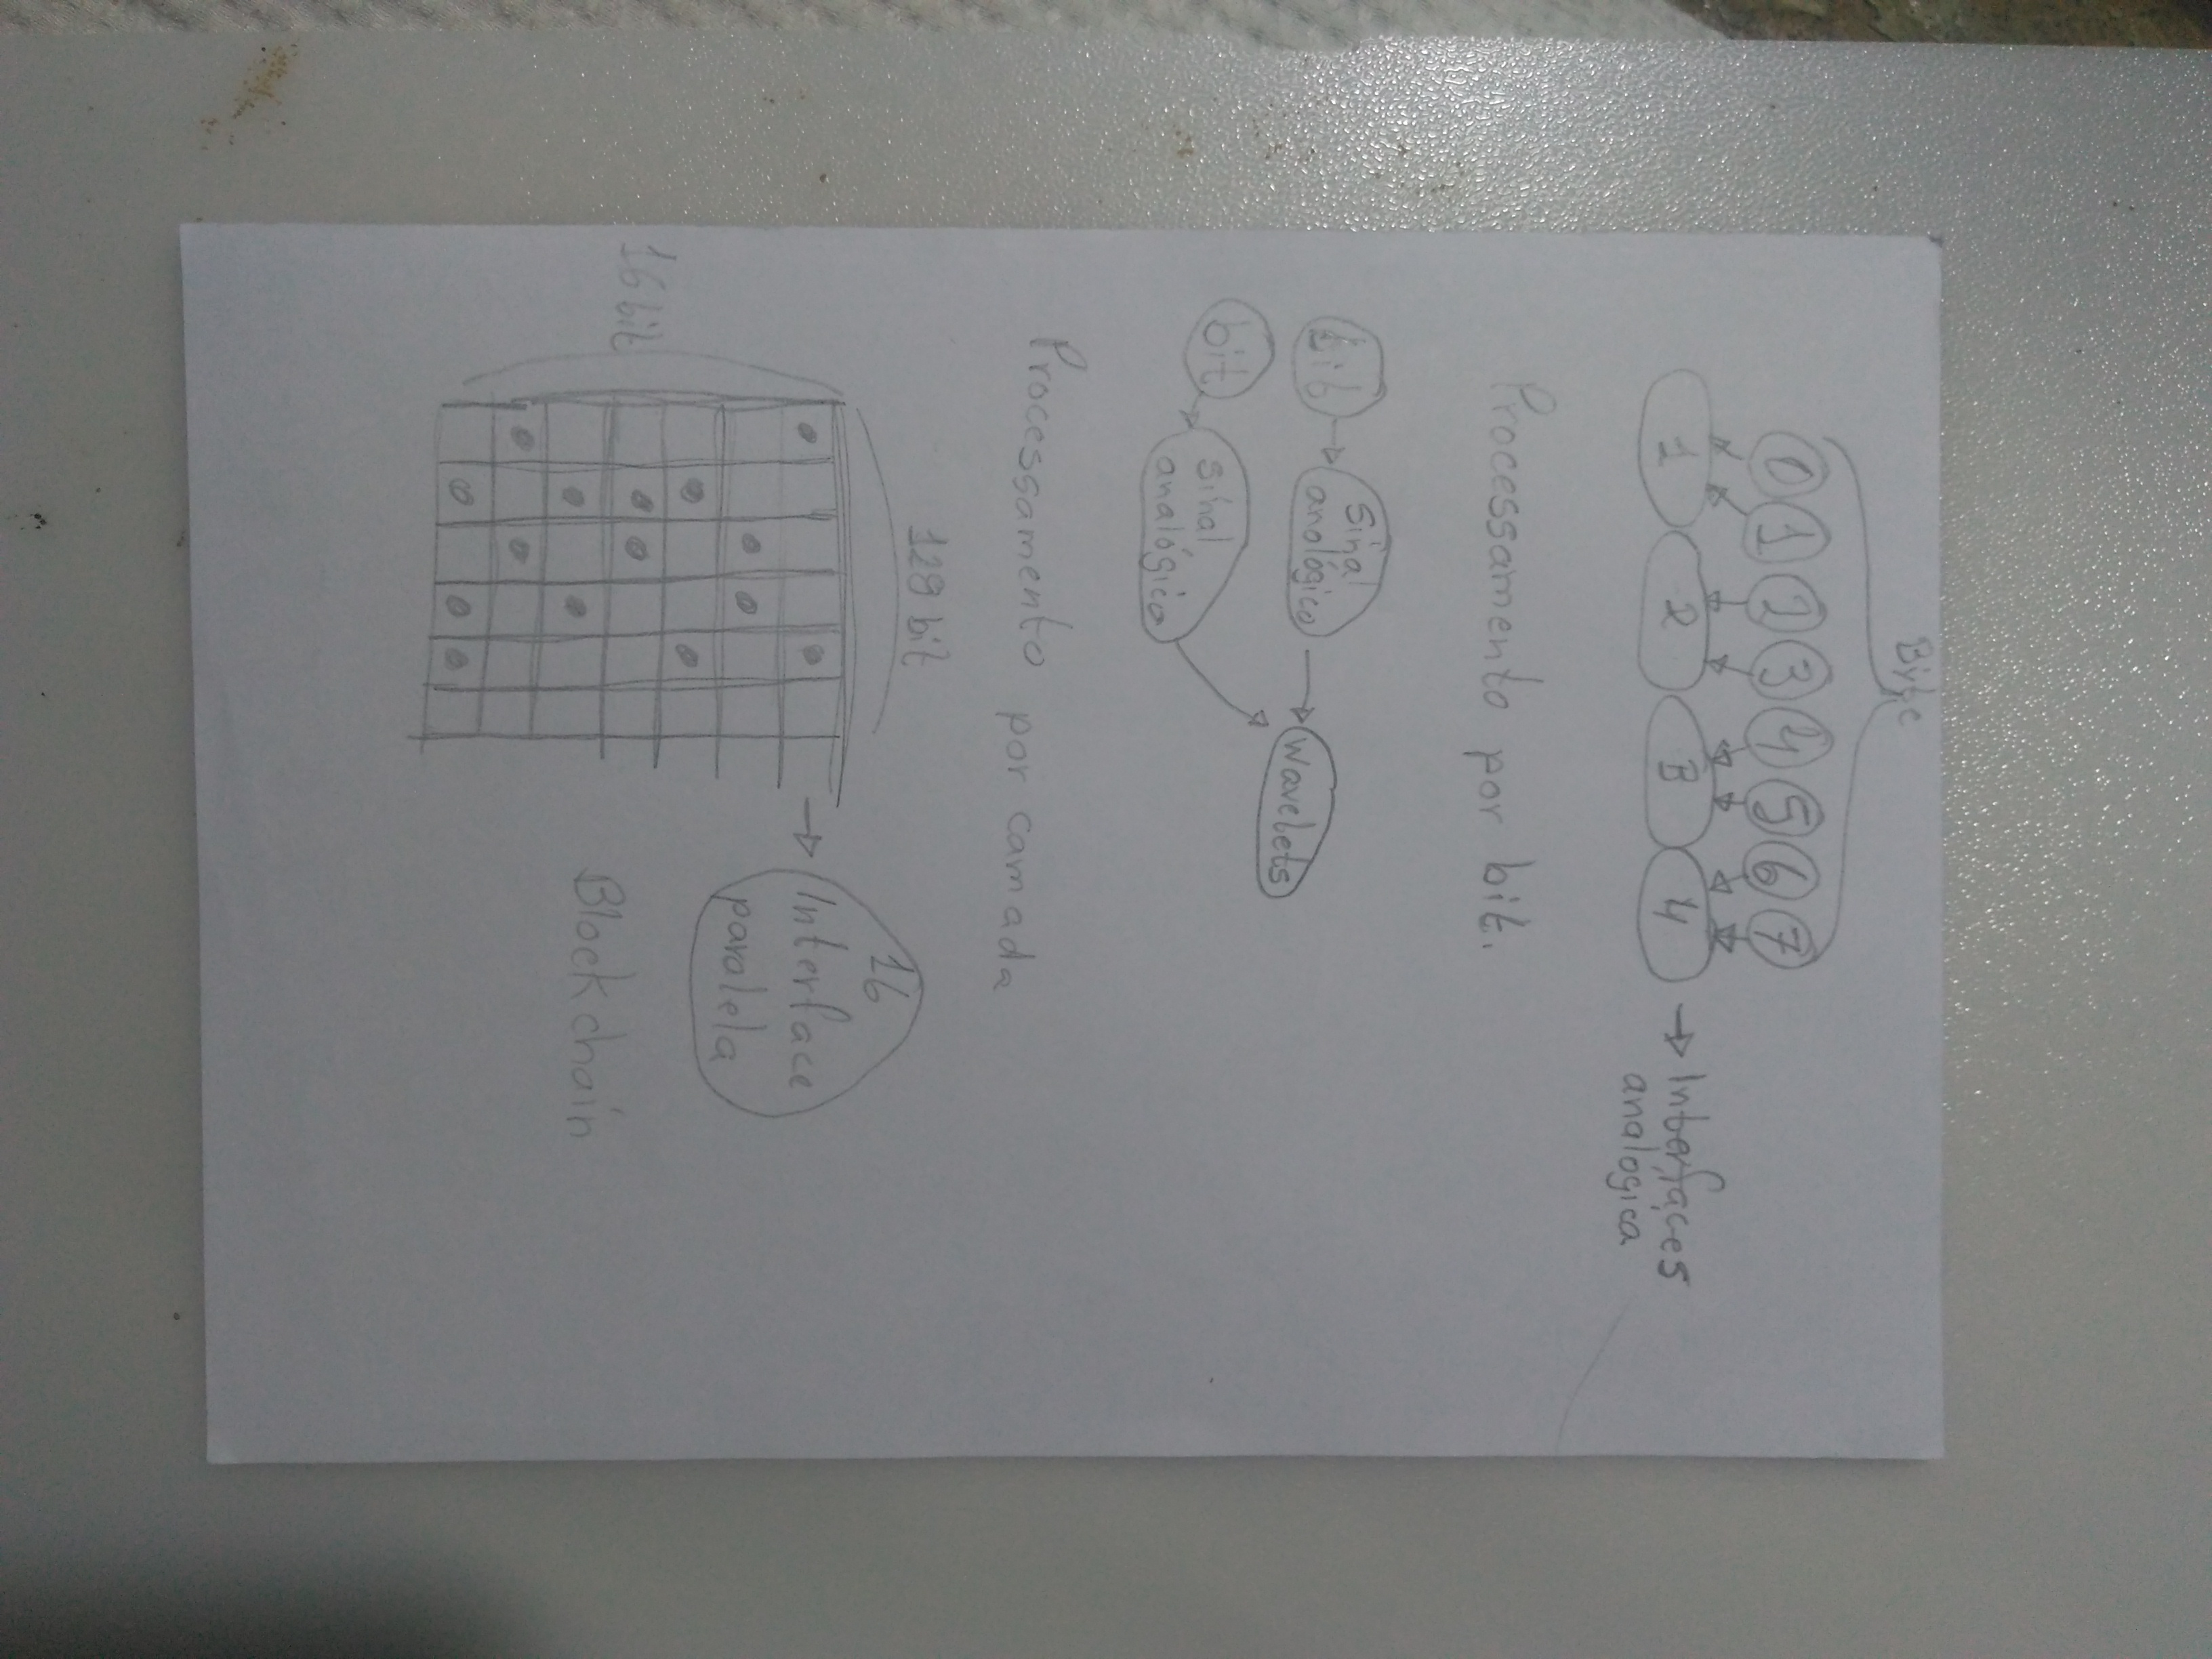 Byte
0 1 2 3 4 5 6 7
1 2 3 4 → Interfaces
analogica
Processamento por bit.
bit → Sinal
analógico → Wavelets
bit → Sinal
analógico
Processamento por camada
128 bit
16 bit
→ 16
Interface
paralela
Blockchain